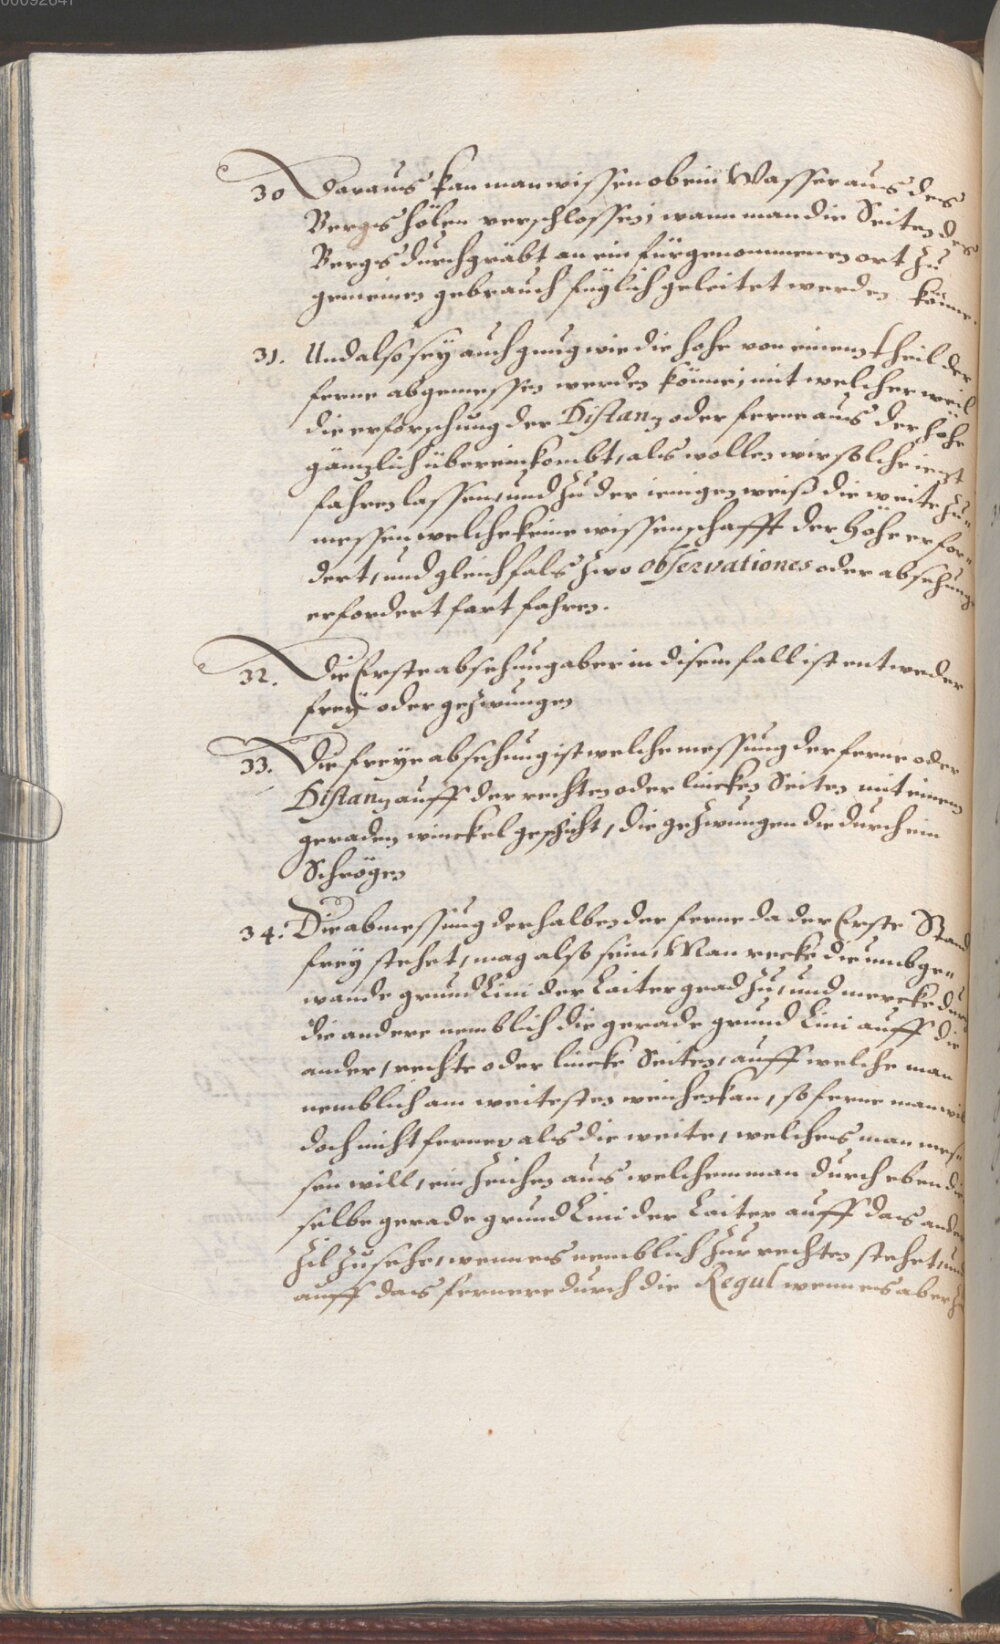 30 Daraus kan man wissen ob ein Wasser aus des
Bergs hölen verschlossen, wann man die Seiten des
Bergs durchgräbt an ein fürgenommenen ort zu
gemeinen gebrauch füglich geleitet werden könne.
31. Und also sey auch gnug wie die höhe von einem theil der
ferne abgemessen werden könne, mit welcher weil
die erforschung der Distantz oder ferne aus der höhe
gäntzlich übereinkombt, als wollen wir solche ietzt
fahren lassen, und zu der ienigen weiß die weite zu
messen welche keine wissenschafft der höhe erfor=
dert, und gleichfals zwo observationes oder absehung
erfordert fort fahren.
32. Die Erste absehung aber in disem fall ist entweder
frey oder gezwungen
33. Die freye absehung ist welche messung der ferne oder
Distantz auff der rechten oder lincken Seiten mit einem
geraden winckel geschicht, die gezwungen die durch ein
Schrögen
34. Die abmessung derhalben der ferne da der Erste Stand
frey stehet, mag also sein, Man recke die umbge=
wande grund Lini der Laiter grad zu, und mercke durch
die andere nemblich die gerade grund Lini auff die
ander, rechte oder lincke Seiten, auff welche man
nemblich am weitesten weichen kan, so ferne man will
doch nicht ferner als die weite, welches man mes=
sen will, ein zeichen aus welchem man durch eben die
selbe gerade grund Lini der Laiter auff das ander
Zil zusehe, wenn es nemblich zur rechten stehet, und
auff das fernere durch die Regul wenn es aber zu